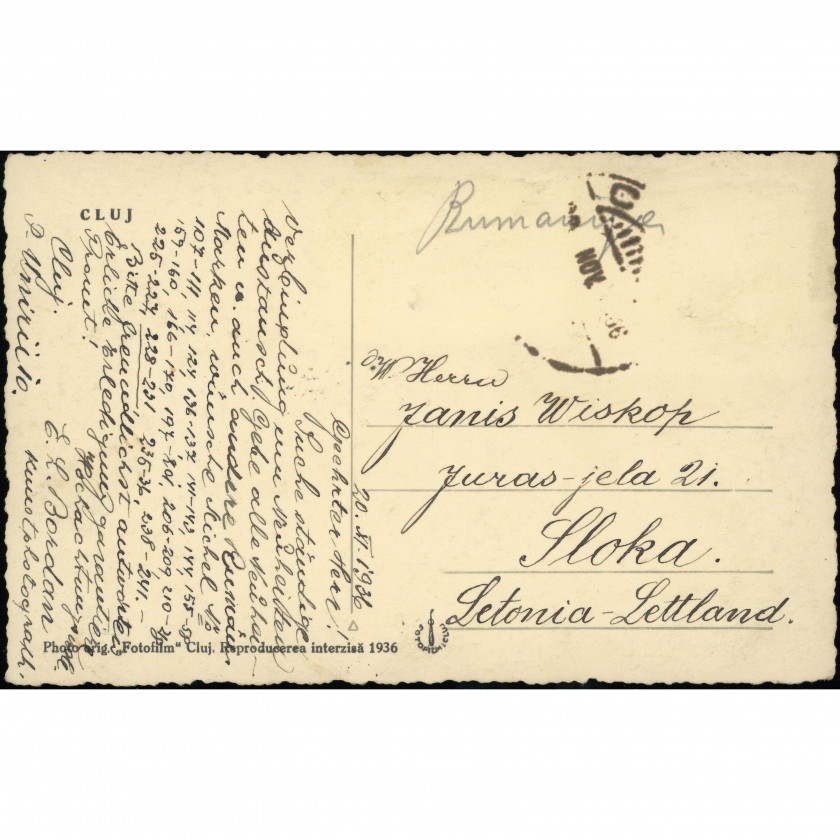 CLUJ
Rumaniya
NOV
36
20. XI. 1936
Geehrter Herr!
Suche ständige
Verbindung um Neuheiten
Austausch. Gebe alle Neuhei-
ten u. auch andere Rumän.
Marken, wünsche Michel No
107-111, 114 124 136-137 141-143 144 155-
159-160, 166-170, 197- 206-209, 210-
225-227 228-231 235-36, 238 241.-
Bitte freundlichst antworten
Erliche Erledigung garantiert
Hochachtungsvoll
E. L. Bordan
Kunstphotograph.
Cluj.
P. Unirii 10.
Herrn
Janis Wiskop
Juras-jela 21.
Sloka.
Letonia-Lettland.
Photo orig. „Fotofilm" Cluj. Reproducerea interzisă 1936
FOTOFILM CLUJ